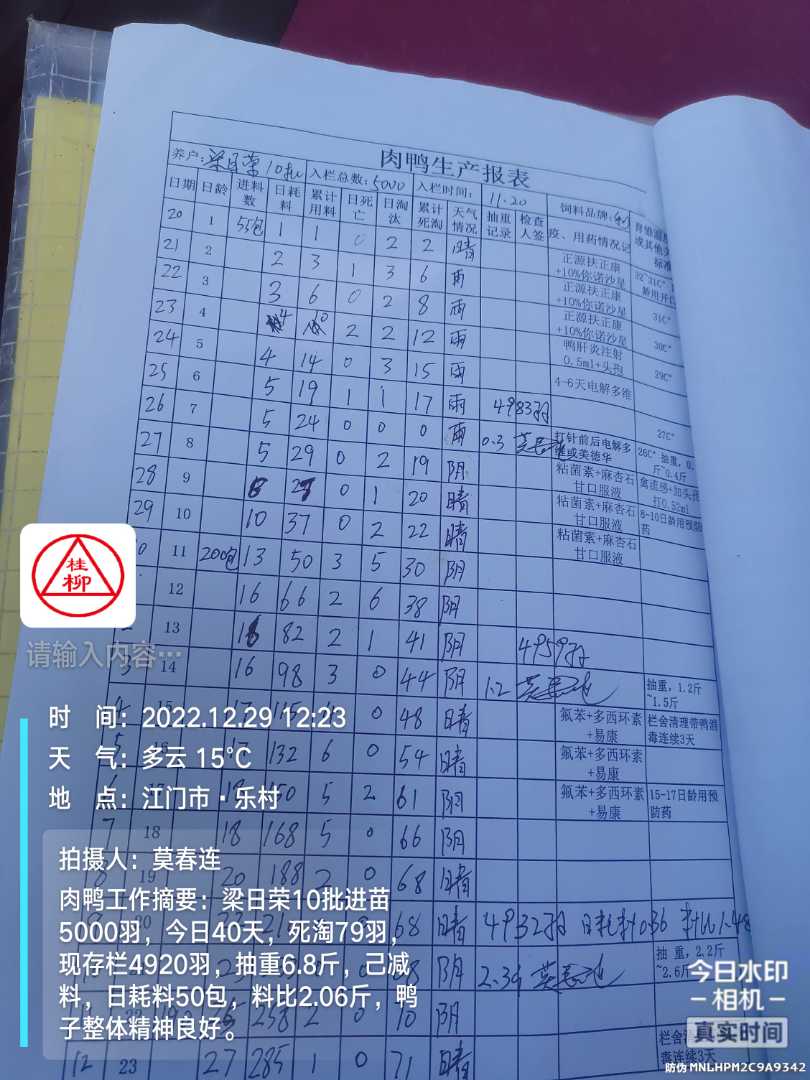 肉鸭生产报表
养户:梁日荣10批 入栏总数:5000 入栏时间: 11.20 饲料品牌:
日期 日龄 进料数 日耗料 累计用料 日死亡 日淘汰 累计死淘 天气情况 抽重记录 检查人签 疫、用药情况记
20 1 55包 1 1 0 2 2 晴 正源扶正康+10%你诺沙星 32~31C°
21 2 2 3 1 3 6 雨 正源扶正康+10%你诺沙星 31C°
22 3 3 6 0 2 8 雨 正源扶正康+10%你诺沙星 30C°
23 4 4 10 2 2 12 雨 鸭肝炎注射0.5ml+头孢 29C°
24 5 4 14 0 3 15 雨 4-6天电解多维
25 6 5 19 1 1 17 雨 4983羽 27C°
26 7 5 24 0 0 0 雨 0.3 莫春连 打针前后电解多维或美德华 26C° 抽重,0.3斤~0.4斤
27 8 5 29 0 2 19 阴 粘菌素+麻杏石甘口服液 禽流感+加头孢打0.52ml
28 9 8 27 0 1 20 晴 粘菌素+麻杏石甘口服液 8-10日龄用预防药
29 10 10 37 0 2 22 晴 粘菌素+麻杏石甘口服液
11 200包 13 50 3 5 30 阴
12 16 66 2 6 38 阴
13 16 82 2 1 41 阴 4959羽
3 14 16 98 3 0 44 阴 1.2 莫春连 抽重,1.2斤~1.5斤
4 15 17 115 0 48 晴 氟苯+多西环素+易康 栏舍清理带鸭消毒连续3天
5 132 6 0 54 晴 氟苯+多西环素+易康
6 18 150 5 2 61 阴 氟苯+多西环素+易康 15-17日龄用预防药
7 18 18 168 5 0 66 阴
19 20 188 2 0 68 晴
20 68 晴 4932羽 日耗料0.36 料比1.48
阴 2.39 莫春连 抽 重,2.2斤~2.6斤
258 2 0 70 阴
12 23 27 285 1 0 71 晴 毒连续3天
桂柳
请输入内容…
时 间:2022.12.29 12:23
天 气:多云 15℃
地 点:江门市·乐村
拍摄人:莫春连
肉鸭工作摘要:梁日荣10批进苗
5000羽,今日40天,死淘79羽,
现存栏4920羽,抽重6.8斤,己减
料,日耗料50包,料比2.06斤,鸭
子整体精神良好。
今日水印
-相机-
真实时间
防伪 MNLHPM2C9A9342